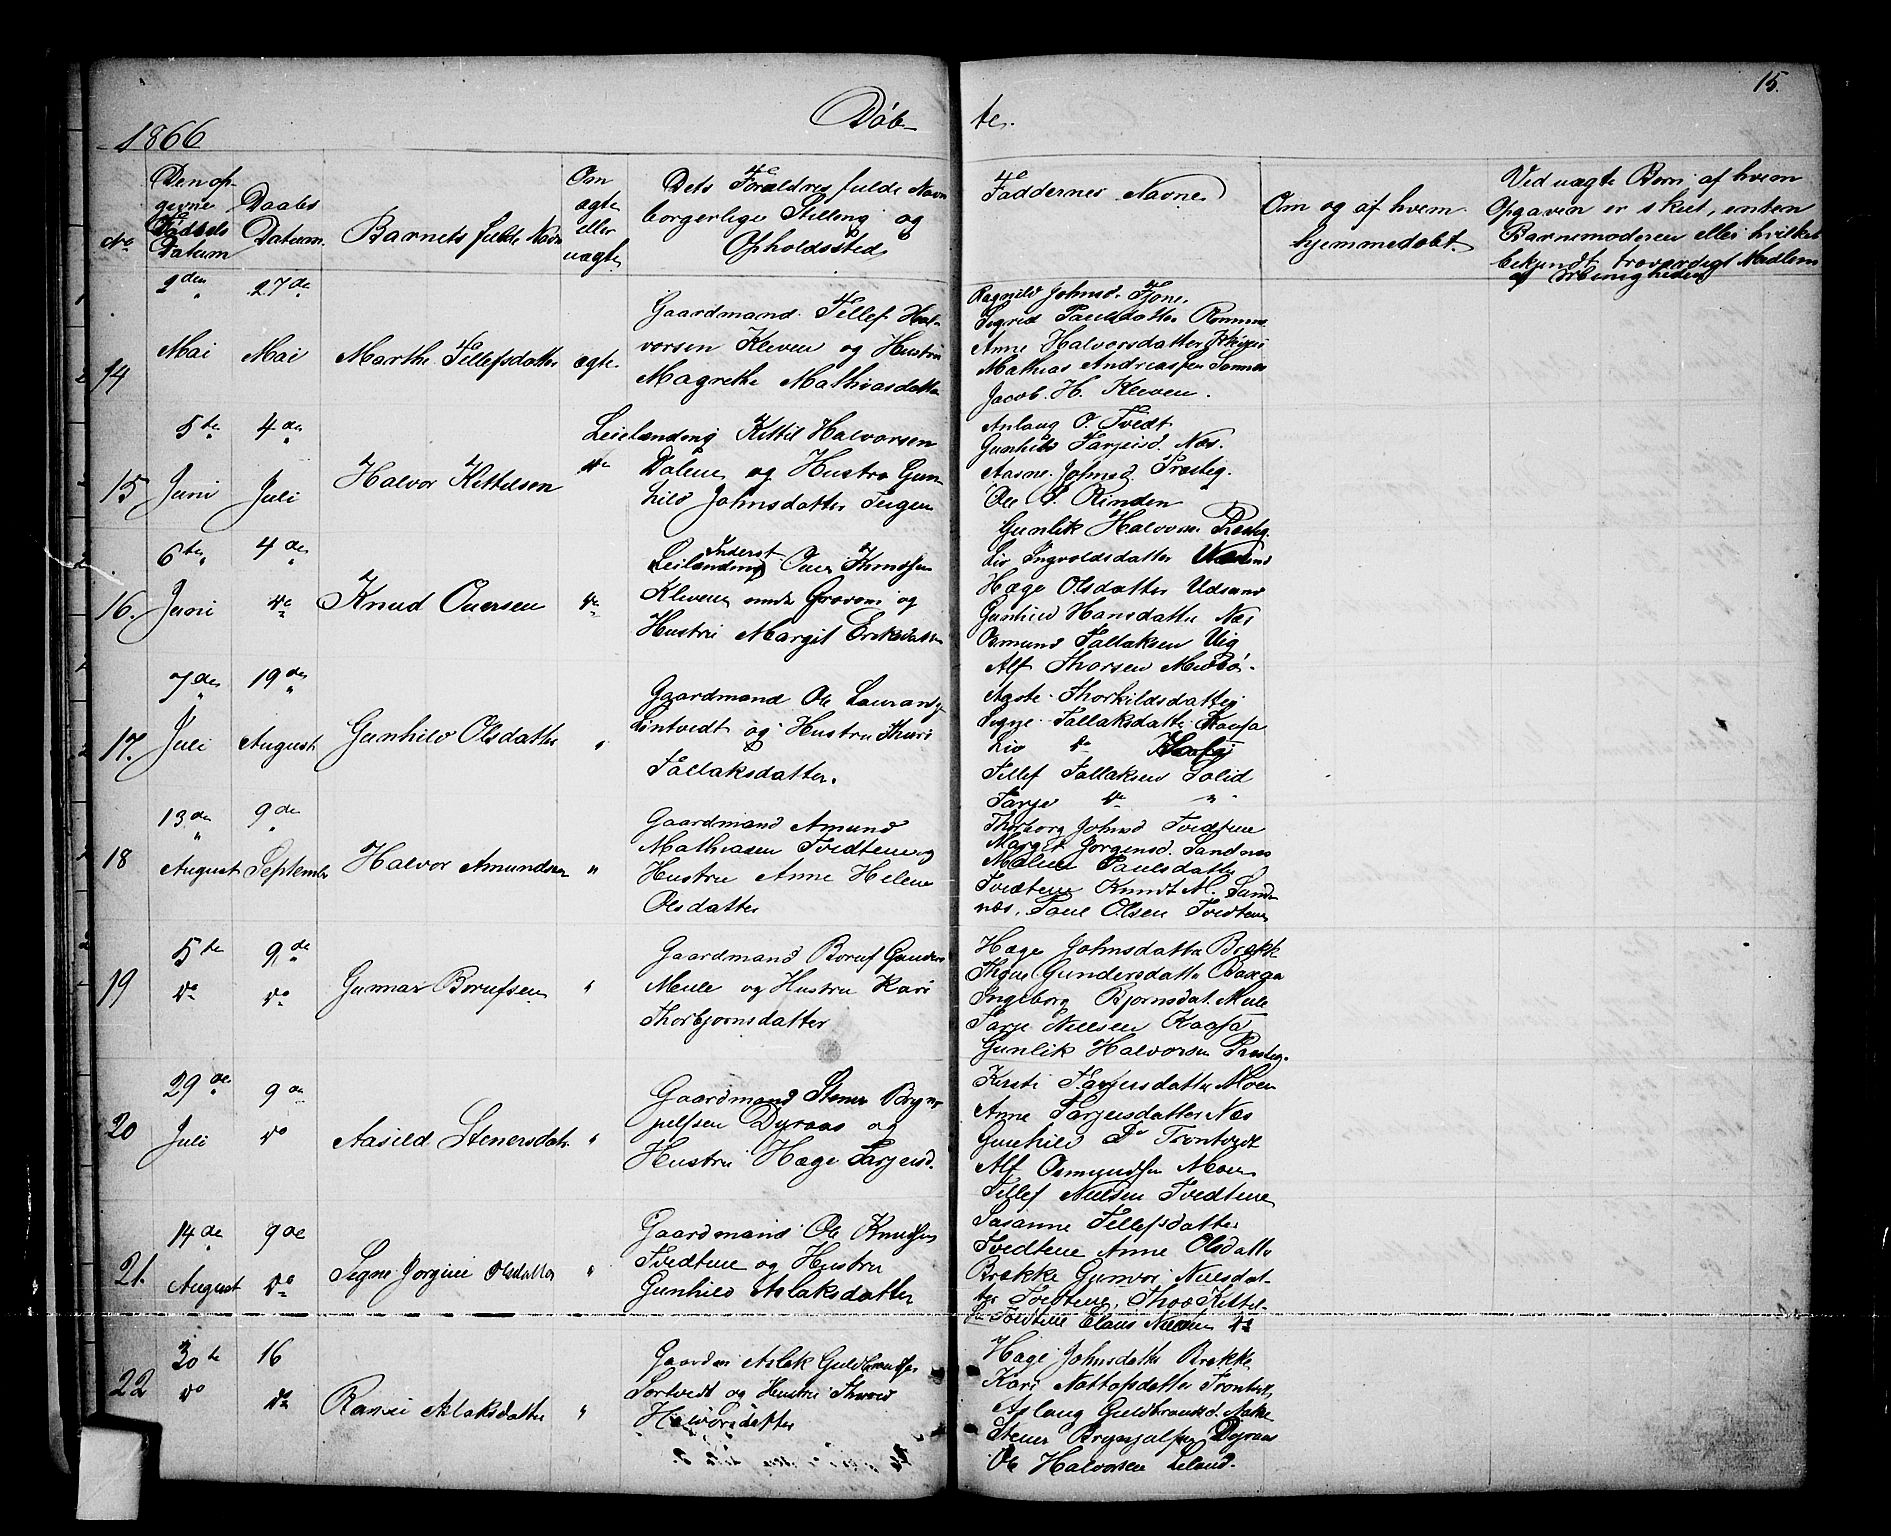 15.
1866
Døb-
te.
No
Den op-
gevne
Fødsels
Datum
Daabs
Datum
Barnets fulde Navn
Om
ægte
eller
uægte
Dets Forældres fulde Navn
borgerlige Stilling og
Opholdssted
Faddernes Navne
Om og af hvem
hjemmedøbt
Ved uægte Børn, af hvem
Opgaven er skeet, enten
Barnemoderen eller hvilket
bekjendt troværdigt Medlem
af Menigheden
14
2den
Mai
27de
Mai
Marthe Tellefsdatter
ægte
Gaardmand Tellef Hal-
vorsen Kleven og Hustru
Magrethe Mathiasdatter
Ragnild Johnsd. Fjone.
Sigrid Paulsdatter
Anne Halvorsdatter
Mathias Andreassen
Jacob H. Kleven.
15
5te
Juni
4de
Juli
Halvor Kittelsen
do
Leielænding Kittil Halvorsen
Dalene og Hustru Gun-
hild Johnsdatter
Anlaug O. Tvedt
Gunhild Tarjeisd. Næs.
Aasne Johnsd. Præsteg.
Ole S. Rinden
Gunlik Halvors. Præsteg.
16.
6te
Juni
4de
do
Knud Ouersen
do
Inderst
Leilænding Ouer Knudsen
Kleven og
Hustru Margit Eriksdatter
Liv Ingvoldsdatter
Hæge Olsdatter Udsund
Gunhild Hansdatter Næs
Osmund Tallaksen Vig
Alf Thorsen
17.
7de
Juli
19de
August
Gunhild Olsdatter
"
Gaardmand Ole
Lintvedt og Hustru Thuri
Tallaksdatter.
Aaste Thorkildsdatter
Signe Tallaksdatter Kaasa
Liv do
Tellef Tallaksen Solid
Tarje do "
18
13de
August
9de
September
Halvor Amundsen
"
Gaardmand Amund
Mathiasen Tvedtene og
Hustru Anne Helene
Olsdatter
Thorborg Johnsd Tvedtene
Margit Jørgensd. Sandnes
Malene Paulsdatter
Tvedtene Knudt M. Sand-
næs, Paul Olsen Tvedtene
19
5te
do
9de
do
Gunnar Borufsen
"
Gaardmand Boruf Gunders
Meule og Hustru Kari
Thorbjørnsdatter
Hæge Johnsdatter Brække
Thone Gundersdatter
Ingeborg Bjørnsdat. Mule
Tarje Nielsen Kaasa
Gunlik Halvorsen Præsteg.
20
29de
Juli
9de
do
Aasild Stenersdatr
"
Gaardmand Stener Bryn-
julfsen Dyraas og
Hustru Hæge Tarjeisd.
Kirsti Tarjeisdatter Moen
Anne Tarjeisdatter Næs
Gunhild do Trontvedt
Alf Osmundsen Moen
Tellef Nielsen Tvedtene
21.
14de
August
9de
do
Signe Jorgine Olsdatter
"
Gaardmand Ole Knudsen
Tvedtene og Hustru
Gunhild Aslaksdatter
Susanne Tellefsdatter
Tvedtene Anne Olsdatter
Brække Gunvor Nielsdat-
ter Tvedtene, Thor Kittel-
sen Tvedtene Claus Nielsen do
22
30te
do
16
do
Ranei Aslaksdatter
"
Gaardm Aslak Guldbrandsen
Sortvedt og Hustru
Halvorsdatter
Hæge Johnsdatter Brække
Kari Nottolfsdatter Trontvedt
Aslaug Guldbrandsd. Aake
Stener Brynjulfsen Dyraas
Ole Halvorsen Leland.